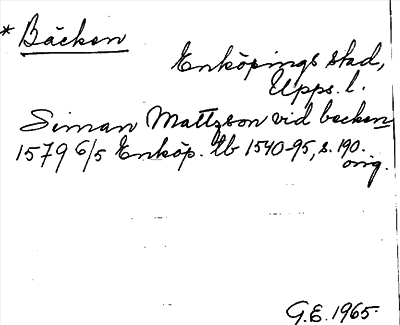 * Bäcken
Enköpings stad,
Upps. l.
Siman Mattzson vid becken
1579 6/5 Enköp. tb 1540-95, s. 190.
orig.
G.E. 1965.